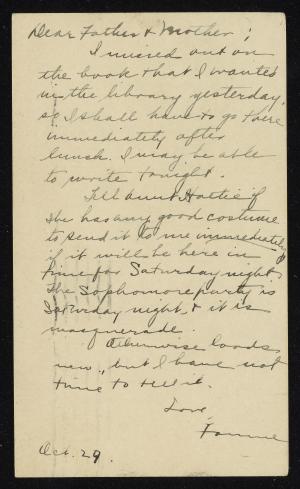 Dear Father & Mother;
I missed out on
the book that I wanted
in the library yesterday,
so I shall have to go there
immediately after
lunch. I may be able
to write tonight.
Tell Aunt Hattie if
she has any good costume
to send it to me immediately
if it will be here in
time for Saturday night.
The Sophomore party is
Saturday night, & it is
masquerade.
Otherwise loads
new, but I have not
time to tell it.
Love,
Fannie
Oct. 29.